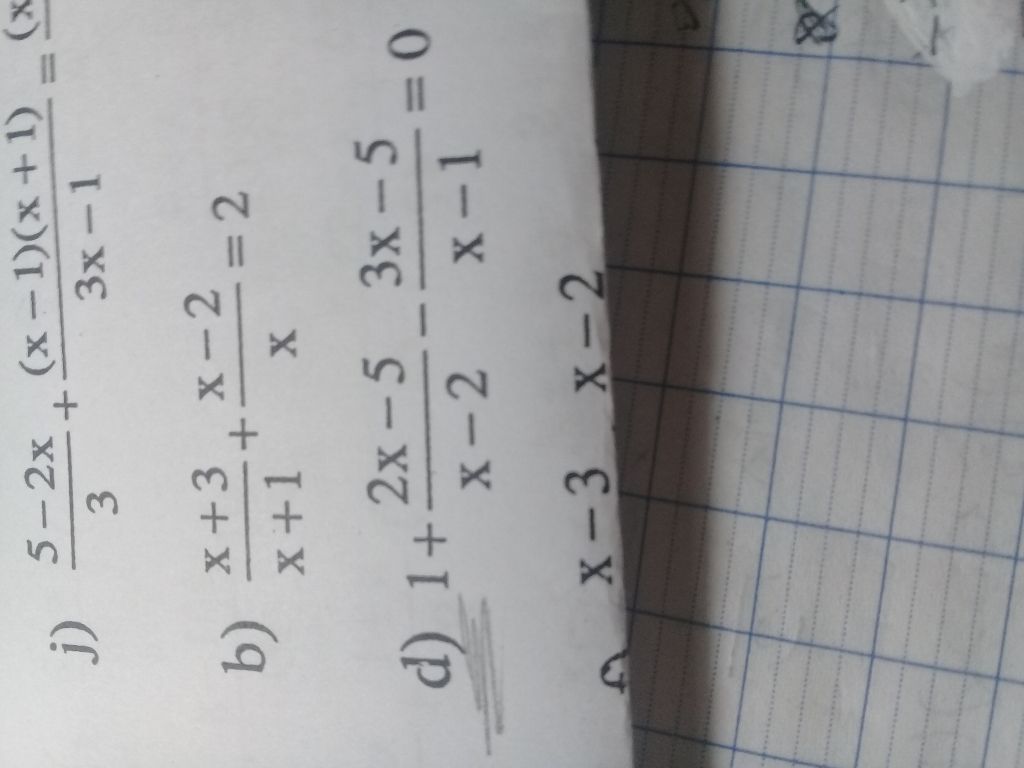 j) (5 − 2x)/3 + ((x − 1)(x + 1))/(3x − 1) = (x
b) (x + 3)/(x + 1) + (x − 2)/x = 2
d) 1 + (2x − 5)/(x − 2) − (3x − 5)/(x − 1) = 0
x − 3 x − 2